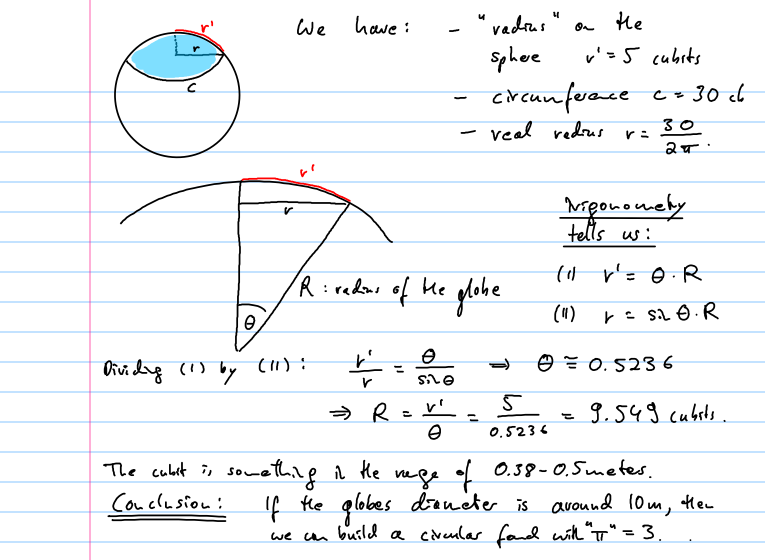 r'
r
c
We have: - "radius" on the
sphere r' = 5 cubits
- circumference c = 30 cb
- real radius r = 30/2π.
r'
r
θ
R : radius of the globe
Trigonometry
tells us:
(I) r' = θ·R
(II) r = sin θ·R
Dividing (I) by (II): r'/r = θ/sin θ ⇒ θ ≅ 0.5236
⇒ R = r'/θ = 5/0.5236 = 9.549 cubits.
The cubit is something in the range of 0.38-0.5 meters.
Conclusion: If the globes diameter is around 10m, then
we can build a circular fand with "π" = 3.